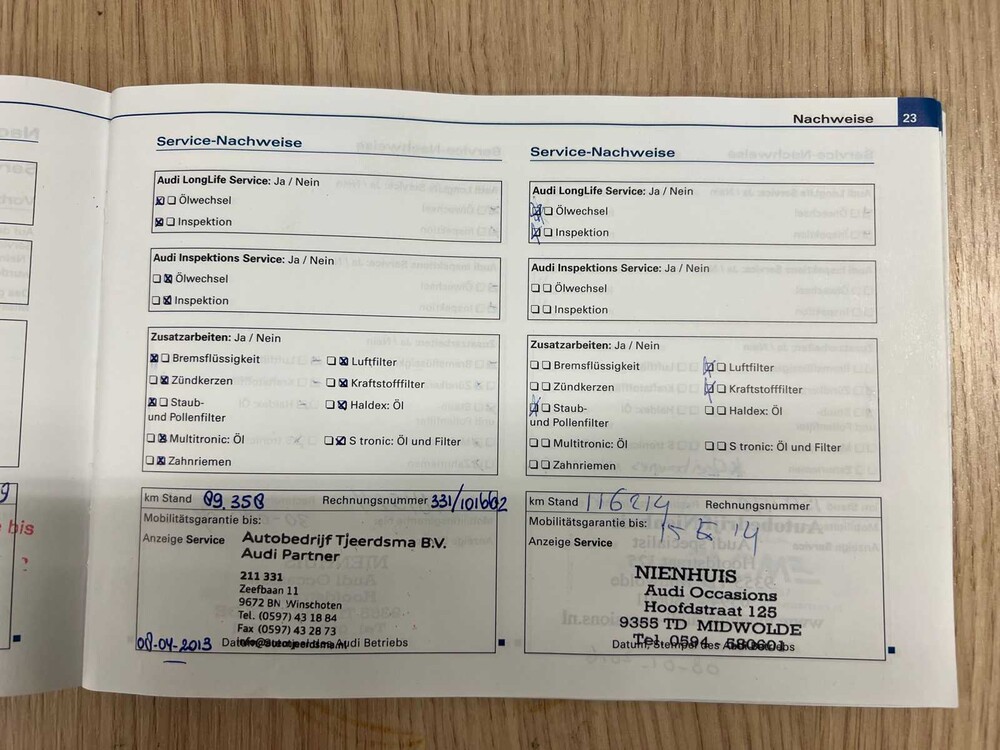 Nachweise 23
Service-Nachweise
Audi LongLife Service: Ja / Nein
Ölwechsel
Inspektion
Audi Inspektions Service: Ja / Nein
Ölwechsel
Inspektion
Zusatzarbeiten: Ja / Nein
Bremsflüssigkeit Luftfilter
Zündkerzen Kraftstofffilter
Staub- Haldex: Öl
und Pollenfilter
Multitronic: Öl S tronic: Öl und Filter
Zahnriemen
km Stand 99.358 Rechnungsnummer 331/101662
Mobilitätsgarantie bis:
Anzeige Service
Autobedrijf Tjeerdsma B.V.
Audi Partner
211 331
Zeefbaan 11
9672 BN Winschoten
Tel. (0597) 43 18 84
Fax (0597) 43 28 73
08-04-2013
Audi Betriebs
Service-Nachweise
Audi LongLife Service: Ja / Nein
Ölwechsel
Inspektion
Audi Inspektions Service: Ja / Nein
Ölwechsel
Inspektion
Zusatzarbeiten: Ja / Nein
Bremsflüssigkeit Luftfilter
Zündkerzen Kraftstofffilter
Staub- Haldex: Öl
und Pollenfilter
Multitronic: Öl S tronic: Öl und Filter
Zahnriemen
km Stand 116214 Rechnungsnummer
Mobilitätsgarantie bis:
Anzeige Service
NIENHUIS
Audi Occasions
Hoofdstraat 125
9355 TD MIDWOLDE
Tel. 0594 -
Datum, Stempel des
bis